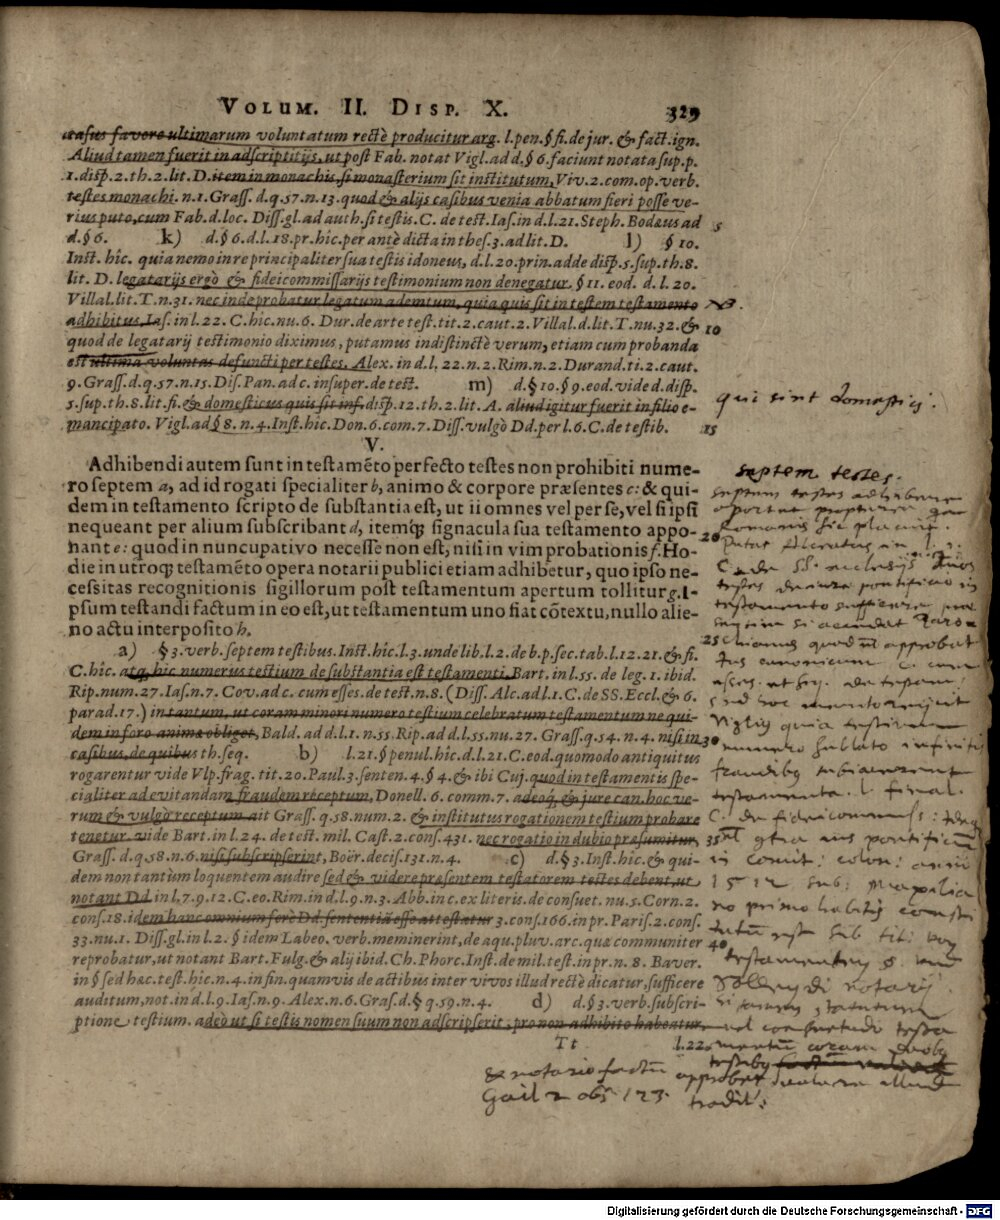 VOLUM. II. DISP. X. 329
casus favore ultimarum voluntatum rectè producitur arg. l. pen. § fi. de jur. & fact. ign.
Aliud tamen fuerit in adscriptitijs, ut post Fab. notat Vigl. ad d. § 6. faciunt notata sup. p.
1. disp. 2. th. 2. lit. D. item in monachis, si monasterium sit institutum, Viv. 2. com. op. verb.
testes monachi. n. 1. Grass. d. q. 57. n. 13. quod & alijs casibus venia abbatum fieri posse ve-
rius puto, cum Fab. d. loc. Diss. gl. ad auth. si testis. C. de test. Ias. in d. l. 21. Steph. Bodæus ad 5
d. § 6. k) d. § 6. d. l. 18. pr. hîc. per antè dicta in thes. 3. ad lit. D. l) § 10.
Inst. hîc. quia nemo in re principaliter sua testis idoneus, d. l. 20. prin. adde disp. 5. sup. th. 8.
lit. D. legatarijs ergò & fideicommissarijs testimonium non denegatur. § 11. eod. d. l. 20.
Villal. lit. T. n. 31. nec inde probatur legatum ademtum, quia quis sit in testem testamento
adhibitus, Ias. in l. 22. C. hîc. nu. 6. Dur. de arte test. tit. 2. caut. 2. Villal. d. lit. T. nu. 32. & 10
quod de legatarij testimonio diximus, putamus indistinctè verum, etiam cum probanda
est ultima voluntas defuncti per testes. Alex. in d. l. 22. n. 2. Rim. n. 2. Durand. ti. 2. caut.
9. Grass. d. q. 57. n. 15. Dis. Pan. ad c. insuper. de test. m) d. § 10. § 9. eod. vide d. disp.
5. sup. th. 8. lit. fi. & domesticus quis sit inf. disp. 12. th. 2. lit. A. aliud igitur fuerit in filio e-
qui sint domestici.
mancipato. Vigl. ad § 8. n. 4. Inst. hîc. Don. 6. com. 7. Diss. vulgò Dd. per l. 6. C. de testib. 15
V.
Adhibendi autem sunt in testamẽto perfecto testes non prohibiti nume-
ro septem a, ad id rogati specialiter b, animo & corpore præsentes c: & qui-
dem in testamento scripto de substantia est, ut ii omnes vel per se, vel si ipsi
nequeant per alium subscribant d, itemq; signacula sua testamento appo- 20
nant e: quod in nuncupativo necesse non est, nisi in vim probationis f. Ho-
die in utroq; testamẽto opera notarii publici etiam adhibetur, quo ipso ne-
cessitas recognitionis sigillorum post testamentum apertum tollitur g. I-
psum testandi factum in eo est, ut testamentum uno fiat cõtextu, nullo alie-
no actu interposito h. 25
a) § 3. verb. septem testibus. Inst. hîc. l. 3. unde lib. l. 2. de b. p. sec. tab. l. 12. 21. & fi.
C. hîc. atq; hic numerus testium de substantia est testamenti, Bart. in l. 55. de leg. 1. ibid.
Rip. num. 27. Ias. n. 7. Cov. ad c. cum esses. de test. n. 8. (Diss. Alc. ad l. 1. C. de SS. Eccl. & 6.
parad. 17.) in tantum, ut coram minori numero testium celebratum testamentum ne qui-
dem in foro animæ obliget, Bald. ad d. l. 1. n. 55. Rip. ad d. l. 55. nu. 27. Grass. q. 54. n. 4. nisi in 30
casibus, de quibus th. seq. b) l. 21. § penul. hîc. d. l. 21. C. eod. quomodo antiquitus
rogarentur vide Vlp. frag. tit. 20. Paul. 3. senten. 4. § 4. & ibi Cuj. quod in testamentis spe-
cialiter ad evitandam fraudem receptum, Donell. 6. comm. 7. adeoq; & jure can. hoc ve-
rum & vulgò receptum ait Grass. q. 58. num. 2. & institutus rogationem testium probare
tenetur. vide Bart. in l. 24. de test. mil. Cast. 2. cons. 431. nec rogatio in dubio præsumitur, 35
Grass. d. q. 58. n. 6. nisi subscripserint, Boër. decis. 131. n. 4. c) d. § 3. Inst. hîc. & qui-
dem non tantum loquentem audire sed & videre præsentem testatorem testes debent, ut
notant Dd. in l. 7. 9. 12. C. eo. Rim. in d. l. 9. n. 3. Abb. inc. ex literis. de consuet. nu. 5. Corn. 2.
cons. 18. idem hanc omnium ferè Dd. sententiã esse attestatur 3. cons. 166. in pr. Paris. 2. cons.
33. nu. 1. Diss. gl. in l. 2. § idem Labeo. verb. meminerint, de aqu. pluv. arc. quæ communiter 40
reprobatur, ut notant Bart. Fulg. & alij ibid. Ch. Phorc. Inst. de mil. test. in pr. n. 8. Baver.
in § sed hæc. test. hîc. n. 4. in fin. quamvis de actibus inter vivos illud rectè dicatur, sufficere
auditum, not. in d. l. 9. Ias. n. 9. Alex. n. 6. Gras. d. § q. 59. n. 4. d) d. § 3. verb. subscri-
ptione testium. adeò ut si testis nomen suum non adscripserit, pro non adhibito habeatur.
Tt l. 22.
septem testes.
septem testes adhibere
oportet
Romanis sic placuit.
testes de iure pontificio in
testamento
quod approbat
Ius canonicum
Viglius quia
numero sublato infiniti
fraudibq
testamenta. l. final.
C. de fideicommiss:
ius pontificium
1512
testamentum coram duobq
testibq
approbat
& notario factũ
Gail 2 obs 123.
tradit.